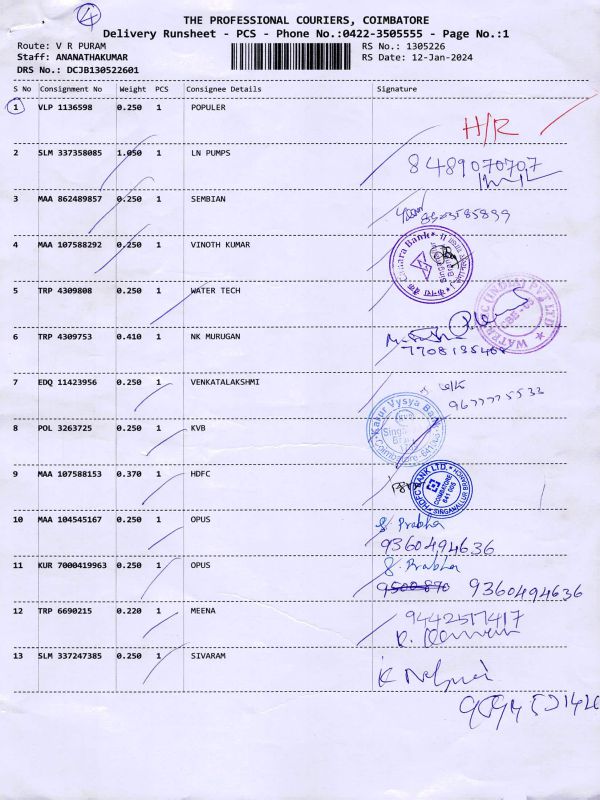 4
THE PROFESSIONAL COURIERS, COIMBATORE
Delivery Runsheet - PCS - Phone No.:0422-3505555 - Page No.:1
Route: V R PURAM RS No.: 1305226
Staff: ANANATHAKUMAR RS Date: 12-Jan-2024
DRS No.: DCJB130522601
S No Consignment No Weight PCS Consignee Details Signature
1 VLP 1136598 0.250 1 POPULER
H/R
2 SLM 337358085 1.050 1 LN PUMPS
8489070707
3 MAA 862489857 0.250 1 SEMBIAN
4 MAA 107588292 0.250 1 VINOTH KUMAR
Canara Bank
5 TRP 4309808 0.250 1 WATER TECH
6 TRP 4309753 0.410 1 NK MURUGAN
7708135468
7 EDQ 11423956 0.250 1 VENKATALAKSHMI
9677775532
Karur Vysya Bank
8 POL 3263725 0.250 1 KVB
9 MAA 107588153 0.370 1 HDFC
HDFC BANK LTD.
COIMBATORE
641 005
SINGANALLUR BRANCH
10 MAA 104545167 0.250 1 OPUS
S. Prabha
9360494636
11 KUR 7000419963 0.250 1 OPUS
S. Prabha
9360494636
12 TRP 6690215 0.220 1 MEENA
9442517417
13 SLM 337247385 0.250 1 SIVARAM